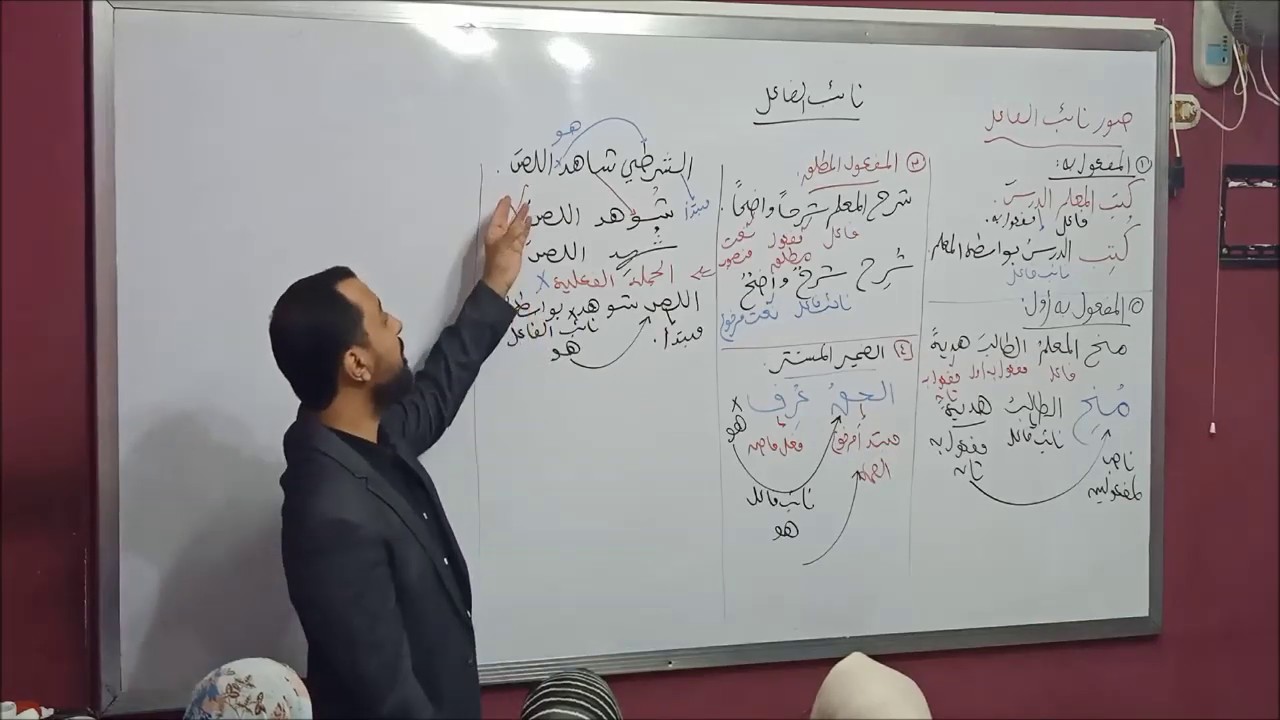 نائب الفاعل
صور نائب الفاعل
١ المفعول به:
كتب المعلم الدرسَ.
فاعل مفعول به.
كُتِب الدرسُ بواسطة المعلم.
نائب فاعل
٢ المفعول به أول:
منح المعلمُ الطالبَ هديةً
فاعل مفعول به أول مفعول به ثانٍ
مُنِح الطالبُ هديةً
نائب فاعل مفعول به ثانٍ
ناصب لمفعولين
٣ المفعول المطلق:
شرح المعلم شرحاً واضحاً.
فاعل مفعول مطلق نعت منصوب
شُرِح شرحٌ واضحٌ
نائب فاعل نعت مرفوع
٤ الضمير المستتر.
الحقُ عُرِف x
مبتدأ مرفوع فعل ماضٍ هو
الضمة
نائب فاعل
هو
هو
الشرطي شاهد اللصَ.
مبتدأ
شُوهد اللص
شُهِد اللص
الجملة الفعلية x
اللص شوهد بواسطة
مبتدأ. نائب الفاعل
هو